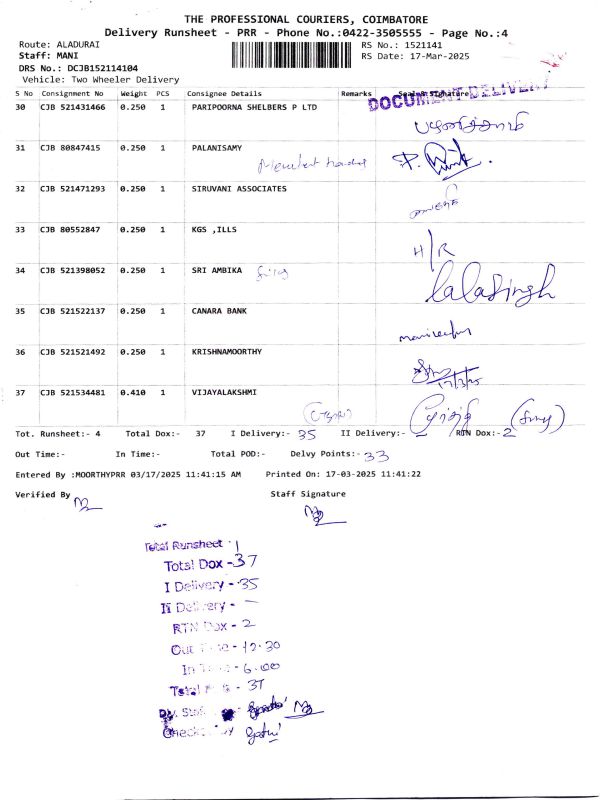 THE PROFESSIONAL COURIERS, COIMBATORE
Delivery Runsheet - PRR - Phone No.:0422-3505555 - Page No.:4
Route: ALADURAI
RS No.: 1521141
Staff: MANI
RS Date: 17-Mar-2025
DRS No.: DCJB152114104
Vehicle: Two Wheeler Delivery
DOCUMENT DELIVERY
S No Consignment No Weight PCS Consignee Details Remarks Seal & Signature
30 CJB 521431466 0.250 1 PARIPOORNA SHELBERS P LTD
31 CJB 80847415 0.250 1 PALANISAMY
32 CJB 521471293 0.250 1 SIRUVANI ASSOCIATES
33 CJB 80552847 0.250 1 KGS ,ILLS
H/R
34 CJB 521398052 0.250 1 SRI AMBIKA
lalasingh
35 CJB 521522137 0.250 1 CANARA BANK
36 CJB 521521492 0.250 1 KRISHNAMOORTHY
17/3/25
37 CJB 521534481 0.410 1 VIJAYALAKSHMI
Tot. Runsheet:- 4 Total Dox:- 37 I Delivery:- 35 II Delivery:- - RTN Dox:- 2
Out Time:- In Time:- Total POD:- Delvy Points:- 33
Entered By :MOORTHYPRR 03/17/2025 11:41:15 AM Printed On: 17-03-2025 11:41:22
Verified By Staff Signature
Total Runsheet - 1
Total Dox - 37
I Delivery - 35
II Delivery - -
RTN Dox - 2
Out Time - 12.30
In Time - 6.00
Total - 37